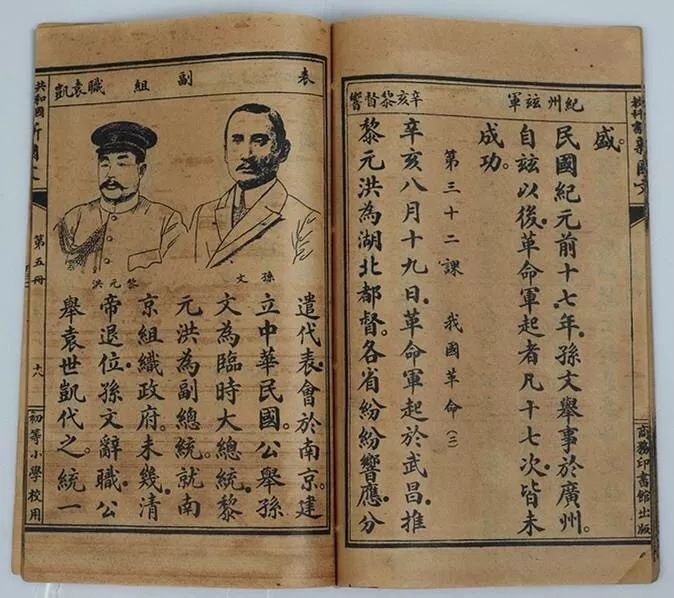 教科書 新國文
商務印書館出版
紀州茲軍 辛亥黎督響
盛。
民國紀元前十七年。孫文舉事於廣州。
自茲以後。革命軍起者凡十七次。皆未
成功。
第三十二課 我國革命(二)
辛亥八月十九日。革命軍起於武昌。推
黎元洪為湖北都督。各省紛紛響應。分
表 副 組 職袁凱
孫文
黎元洪
遣代表。會於南京。建
立中華民國。公舉孫
文為臨時大總統。黎
元洪為副總統。就南
京組織政府。未幾。清
帝退位。孫文辭職。公
舉袁世凱代之。統一
共和國 新國文
第五冊
十八
初等小學校用